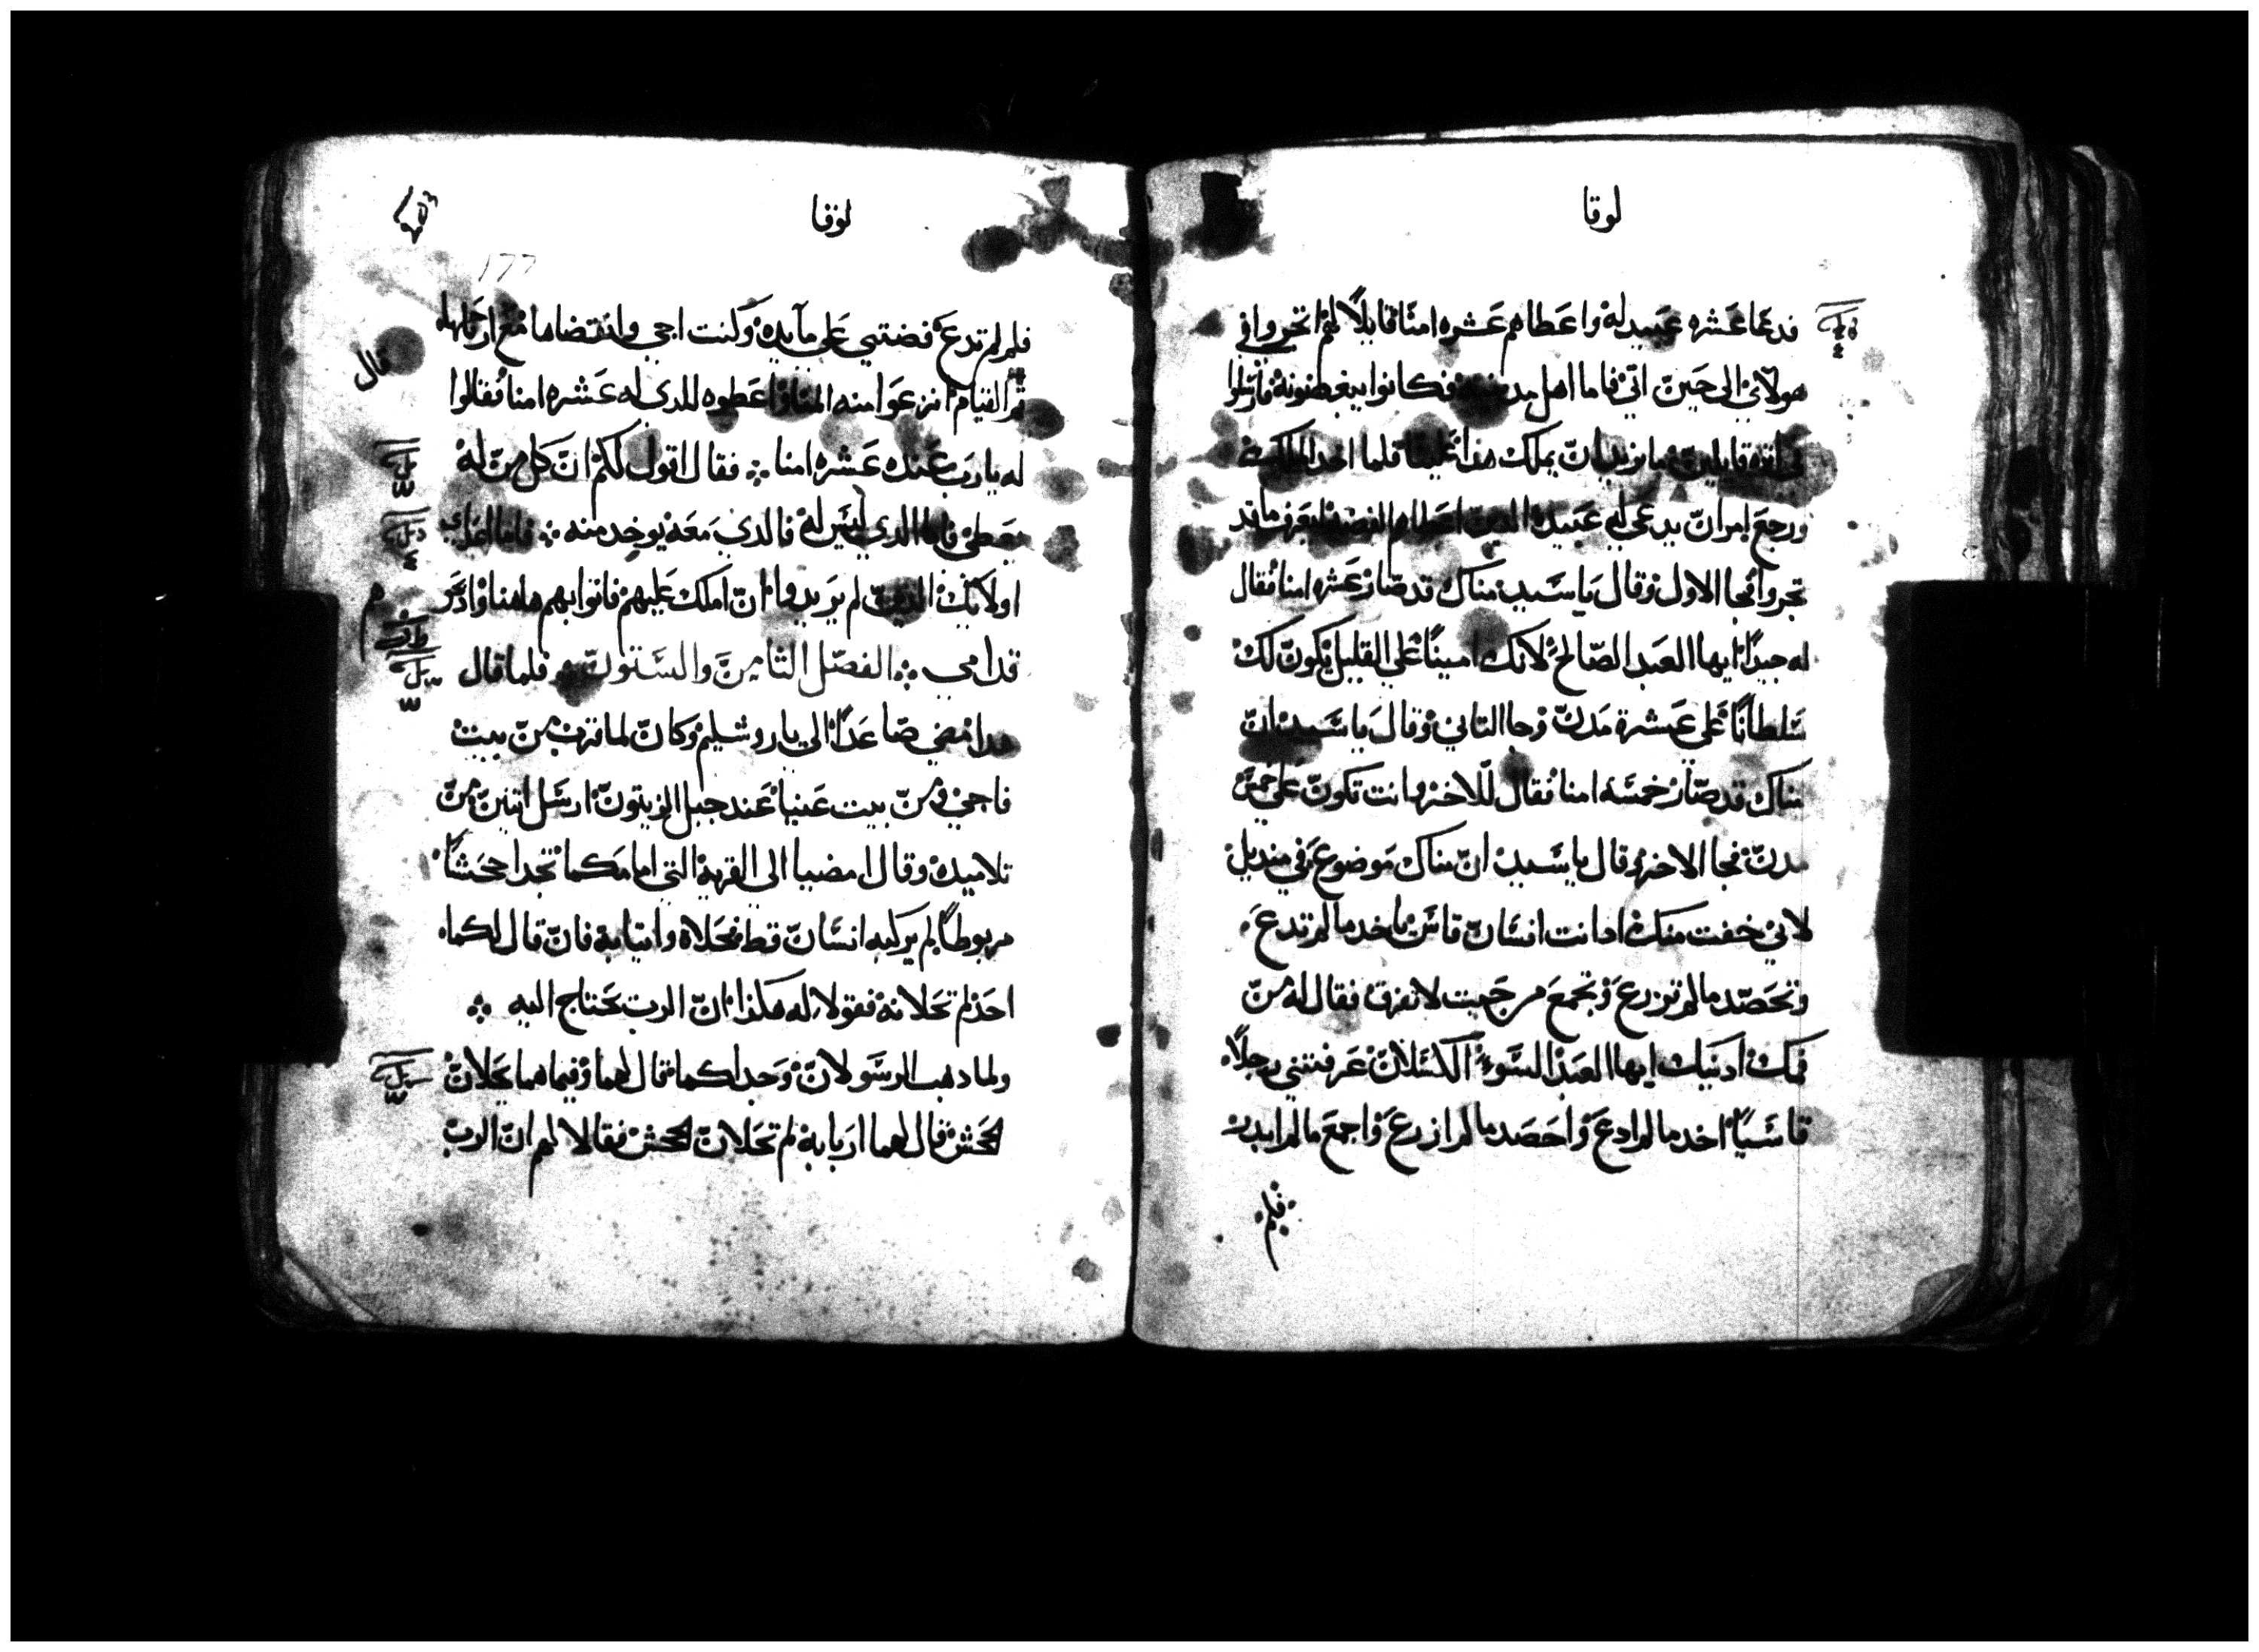 لوقا
فدعا عشره عبيد له واعطاهم عشره امنا قايلا لهم اتجروا في
هولاي الى حين اتي فاما اهل مدينته فكانوا يبغضونه فارسلوا
في اثره قايلين ما نريد ان يملك هذا علينا فلما اخد الملك
ورجع امر ان يدعي له عبيده الدين اعطاهم الفضه ليعرف ما قد
تجروا فجا الاول وقال يا سيد مناك قد صار عشره امنا فقال
له جيدا ايها العبد الصالح لانك امينا علي القليل يكون لك
سلطانا علي عشرة مدن وجا التاني وقال يا سيد ان
مناك قد صار خمسه امنا فقال للاخر وانت تكون علي خمس
مدن فجا الاخر وقال يا سيد ان مناك موضوع في منديل
لاني خفت منك ادا انت انسان قاس تاخد ما لم تدع
وتحصد ما لم تزرع وتجمع من حيت لا تفرق فقال له من
فمك ادينك ايها العبد السوء الكسلان عرفتني رجلا
قاسيا اخد ما لم ادع واحصد ما لم ازرع واجمع ما لم ابدر
فلم
لوقا
177
فلم لم تدع فضتي علي مايده وكنت اجي واتقضاها مع ارباحها
تم القيام انزعوا منه المنا واعطوه للدي له عشره امنا فقالوا
قال
له يا رب عنده عشره امنا فقال اقول لكم ان كل من له
يعطي فاما الدي ليس له فالدي معه يوخد منه فاما اعداي
اولايك الدين لم يريدوا ان املك عليهم فاتوا بهم هاهنا وادبحوهم
قدامي الفصل التامن والستون فلما قال
هدا مضي صاعدا الي ياروشليم وكان لما قرب من بيت
فاجي ومن بيت عنيا عند جبل الزيتون ارسل اتنين من
تلاميده وقال امضيا الي القريه التي امامكما تجدا جحشا
مربوطا لم يركبه انسان قط فحلاه وايتيا به فان قال لكما
احد لم تحلانه فقولا له هكذا ان الرب يحتاج اليه
ولما دهب الرسولان وجدا كما قال لهما وفيما هما يحلان
الجحش قال لهما اربابه لم تحلان الجحش فقالا لهم ان الرب